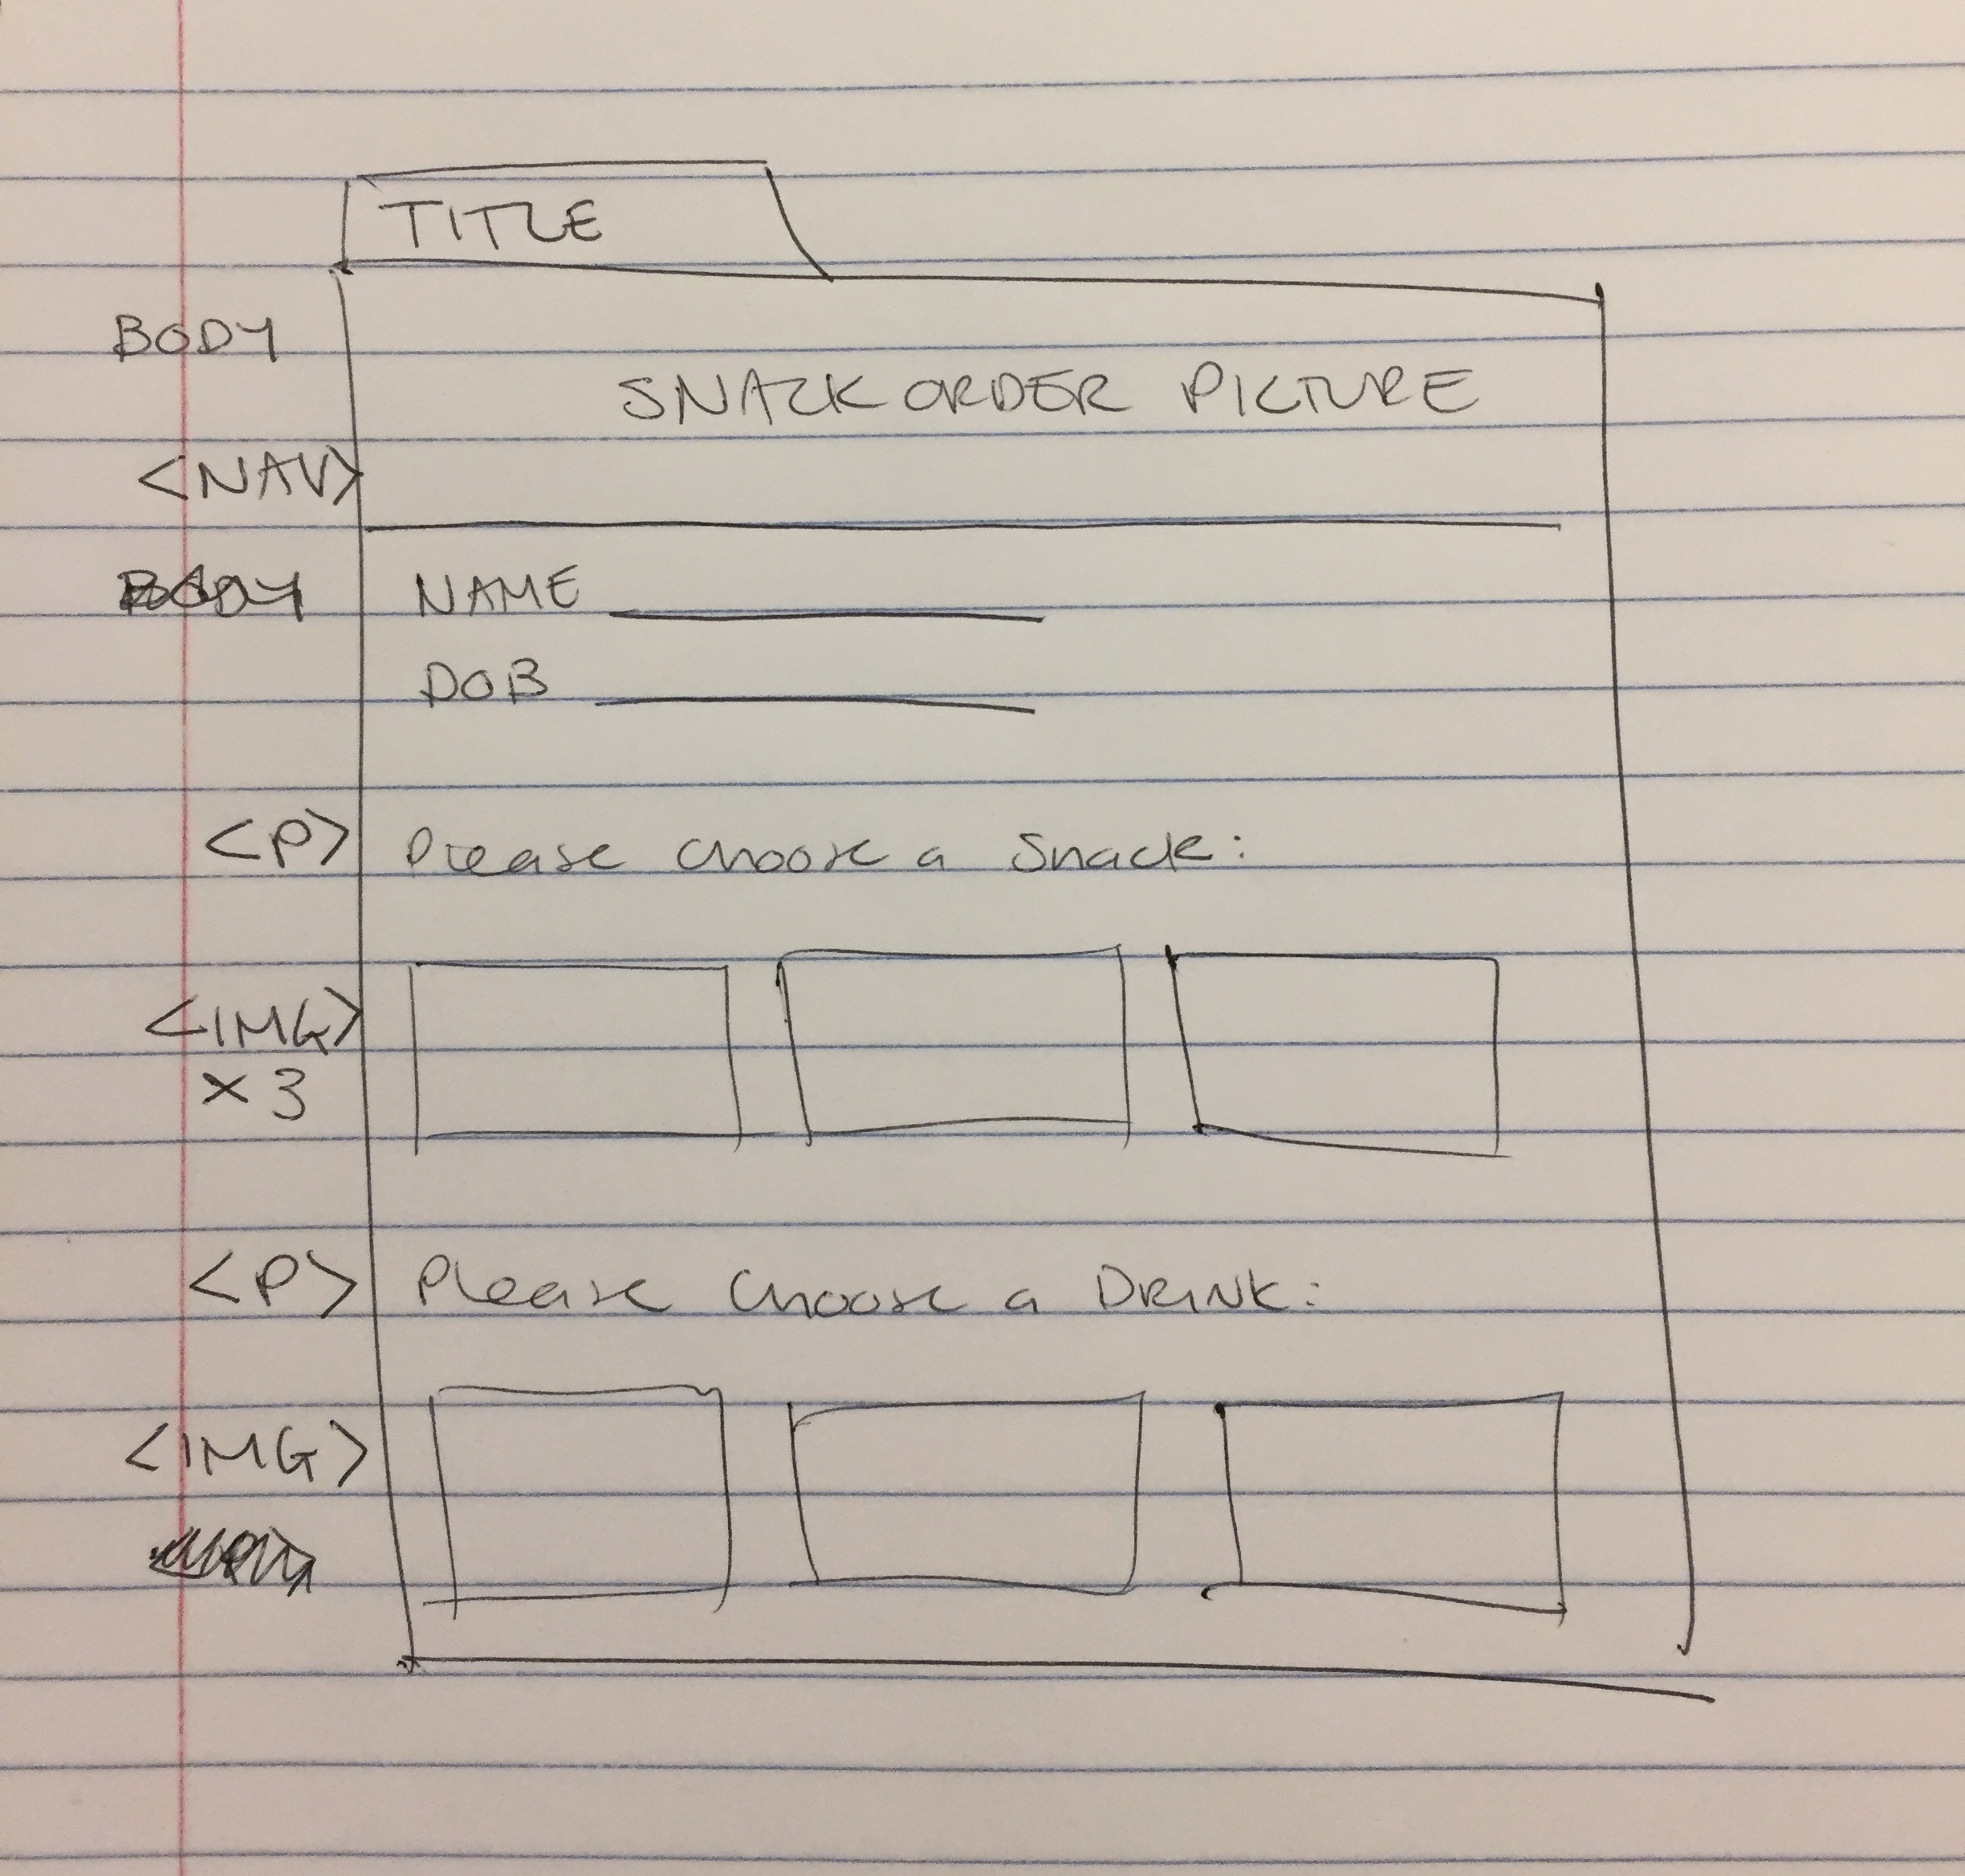 TITLE
BODY
SNACK ORDER PICTURE
<NAV>
BODY NAME
DOB
<P> Please choose a Snack:
<IMG>
x 3
<P> Please Choose a DRINK:
<IMG>